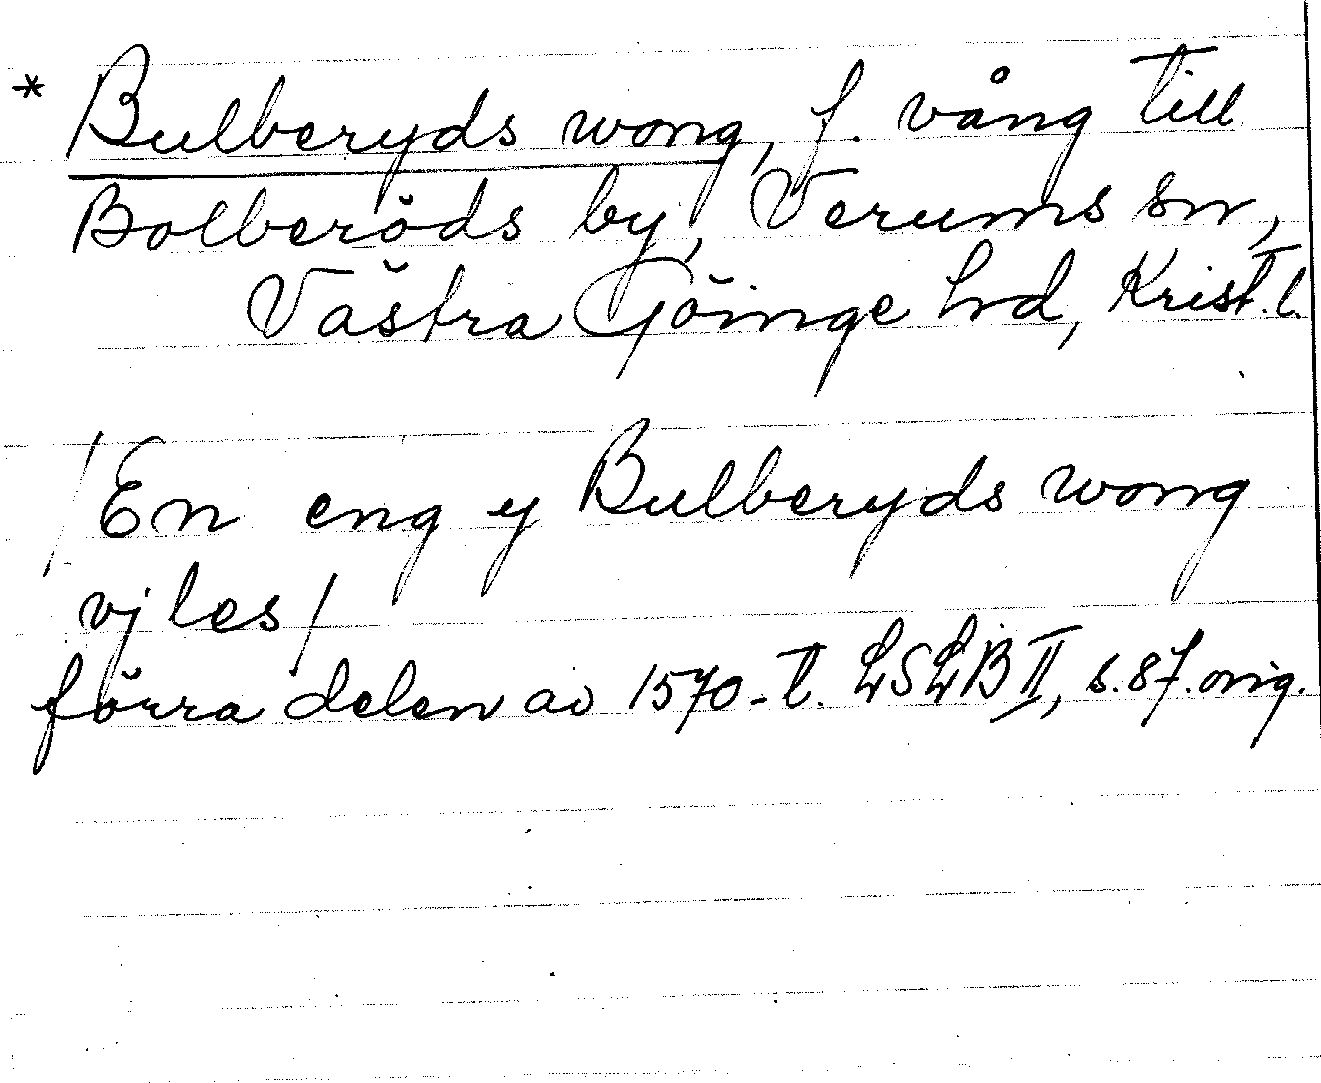 * Bulberyds wong, f. vång till
Bolberöds by, Verums sn,
Västra Göinge hrd, Krist. l.
/En eng y Bulberyds wong
vjles/
förra delen av 1570-t. LSLB II, s. 87. orig.